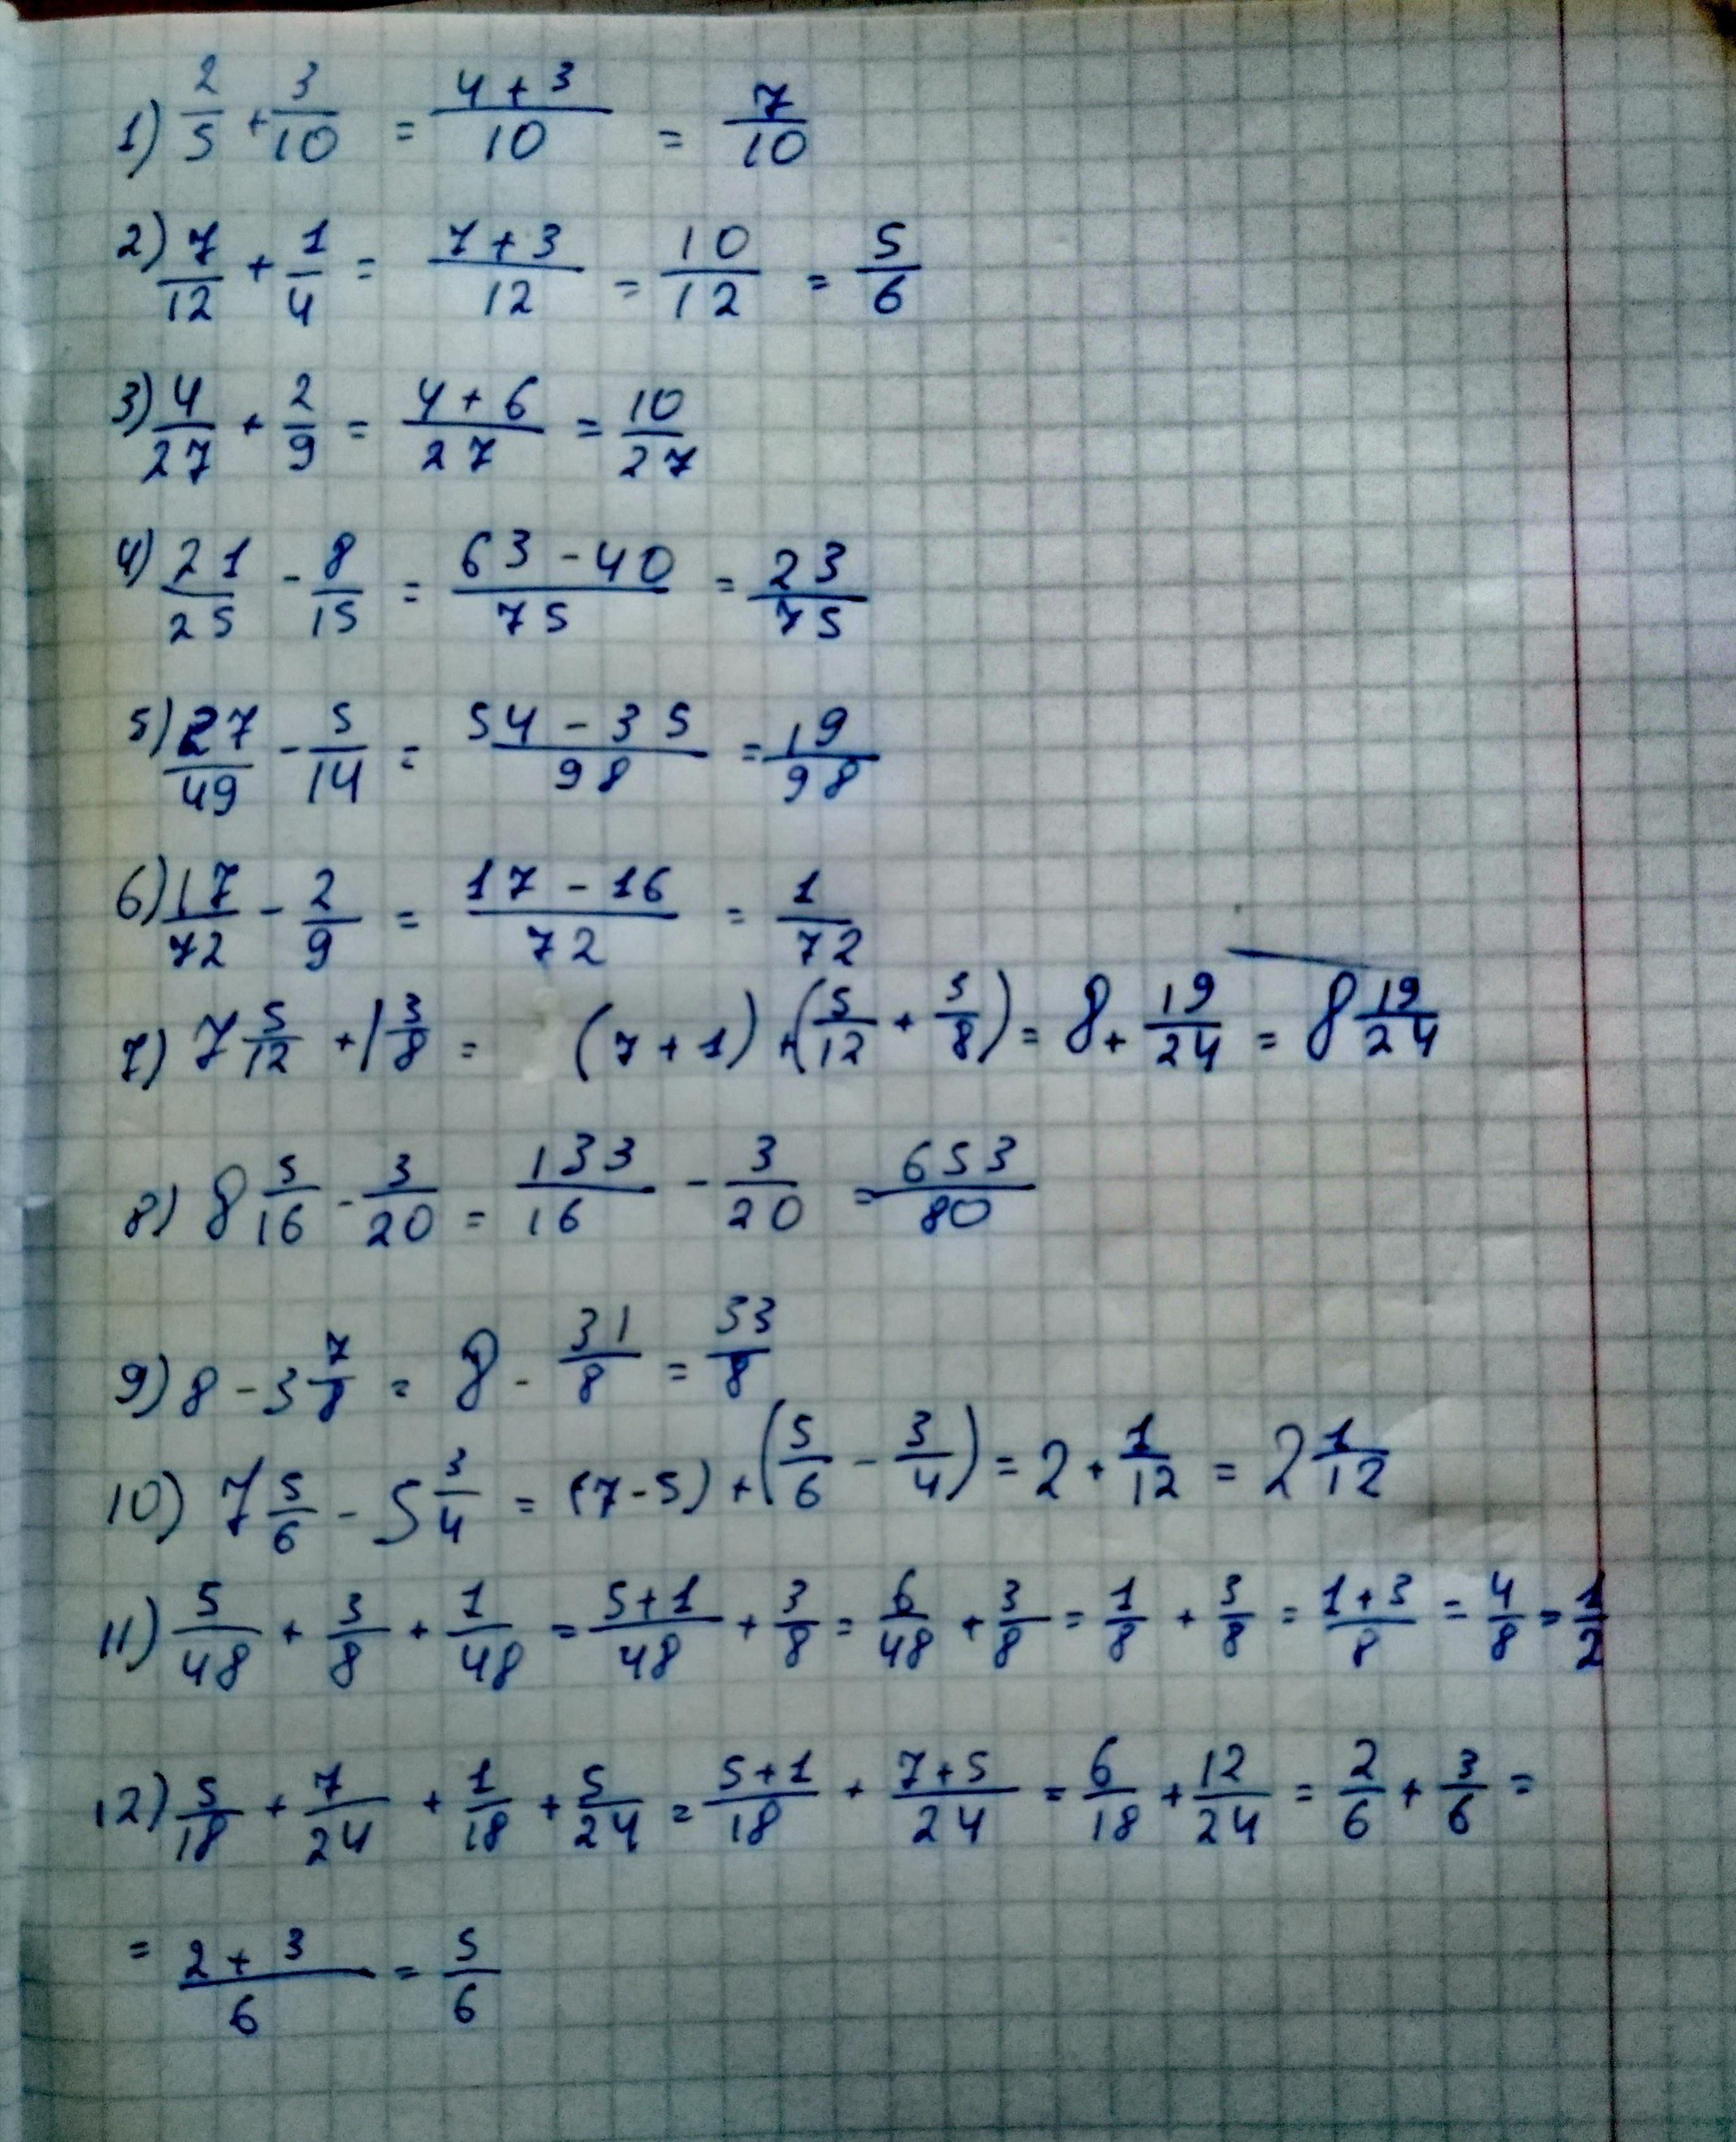 1) 2/5 + 3/10 = (4 + 3)/10 = 7/10
2) 7/12 + 1/4 = (7 + 3)/12 = 10/12 = 5/6
3) 4/27 + 2/9 = (4 + 6)/27 = 10/27
4) 21/25 - 8/15 = (63 - 40)/75 = 23/75
5) 27/49 - 5/14 = (54 - 35)/98 = 19/98
6) 17/72 - 2/9 = (17 - 16)/72 = 1/72
7) 7 5/12 + 1 3/8 = (7 + 1) + (5/12 + 3/8) = 8 + 19/24 = 8 19/24
8) 8 5/16 - 3/20 = 133/16 - 3/20 = 653/80
9) 8 - 3 7/8 = 8 - 31/8 = 33/8
10) 7 5/6 - 5 3/4 = (7 - 5) + (5/6 - 3/4) = 2 + 1/12 = 2 1/12
11) 5/48 + 3/8 + 1/48 = (5 + 1)/48 + 3/8 = 6/48 + 3/8 = 1/8 + 3/8 = (1 + 3)/8 = 4/8 = 1/2
12) 5/18 + 7/24 + 1/18 + 5/24 = (5 + 1)/18 + (7 + 5)/24 = 6/18 + 12/24 = 2/6 + 3/6 =
= (2 + 3)/6 = 5/6